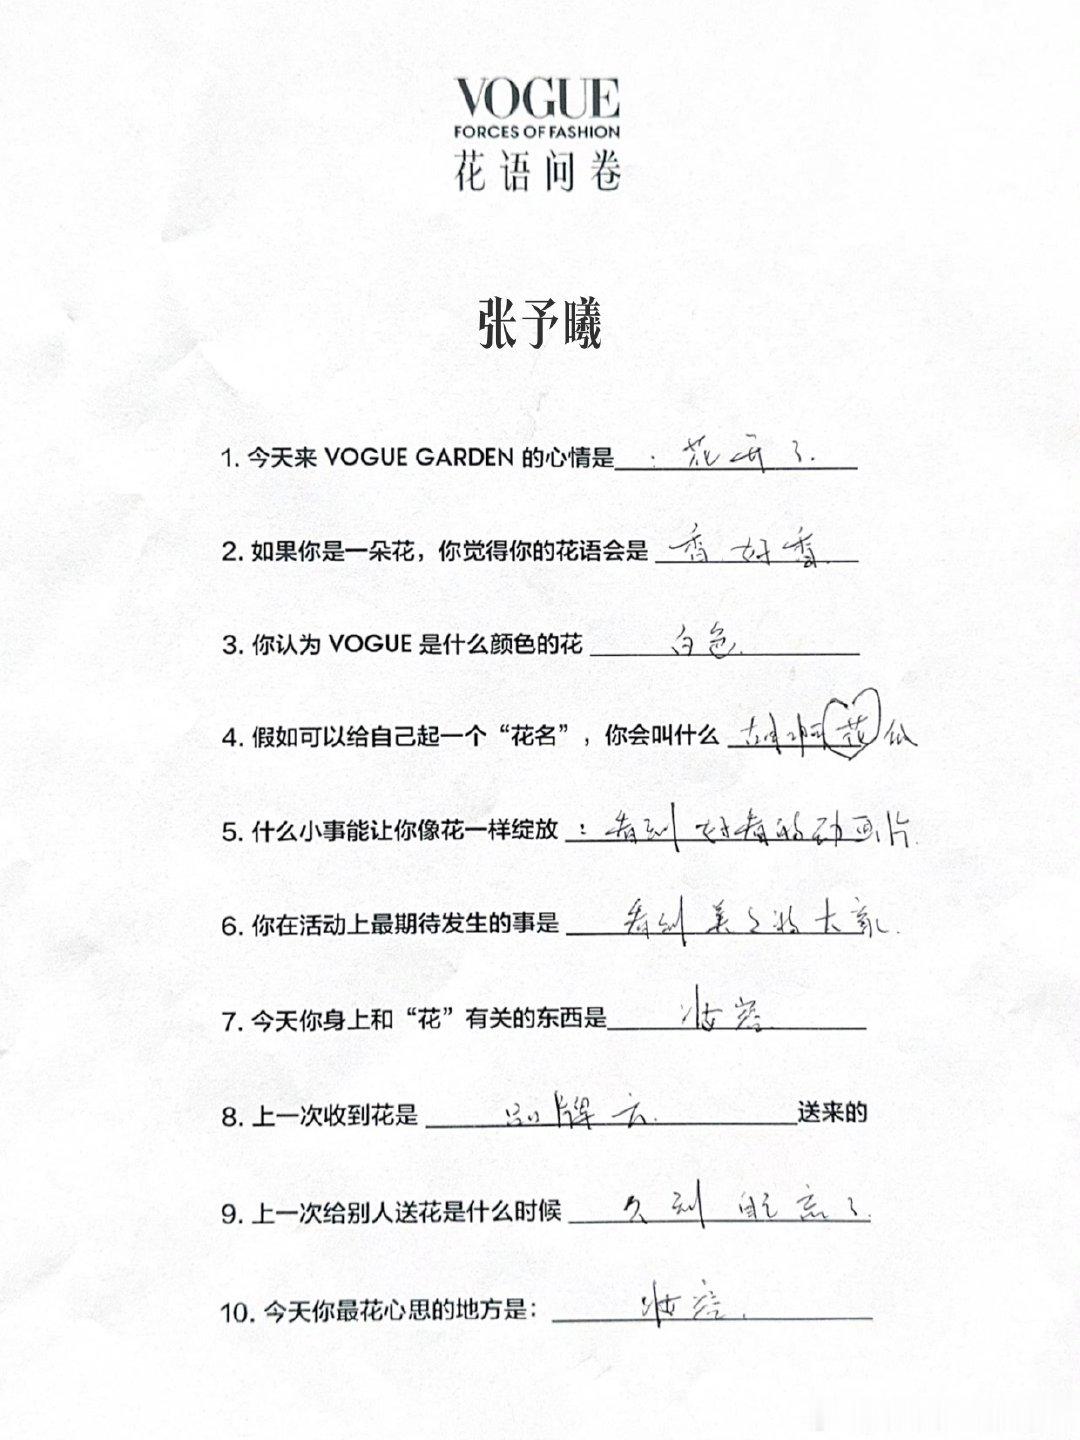 VOGUE
FORCES OF FASHION
花语问卷
张予曦
1. 今天来 VOGUE GARDEN 的心情是 : 花开了.
2. 如果你是一朵花，你觉得你的花语会是 香好香.
3. 你认为 VOGUE 是什么颜色的花 白色.
4. 假如可以给自己起一个“花名”，你会叫什么 胡啊花瓜
5. 什么小事能让你像花一样绽放 : 看到好看的动画片.
6. 你在活动上最期待发生的事是 看到美美的大家.
7. 今天你身上和“花”有关的东西是 妆容.
8. 上一次收到花是 品牌方. 送来的
9. 上一次给别人送花是什么时候 久到自己忘了.
10. 今天你最花心思的地方是： 妆容.